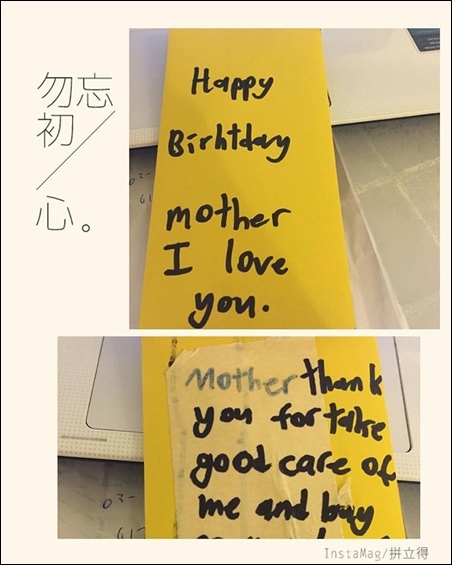 勿忘
初
心。
Happy
Birhtday
mother
I love
you.
Mother thank
you for take
good care of
me and buy
InstaMag/拼立得